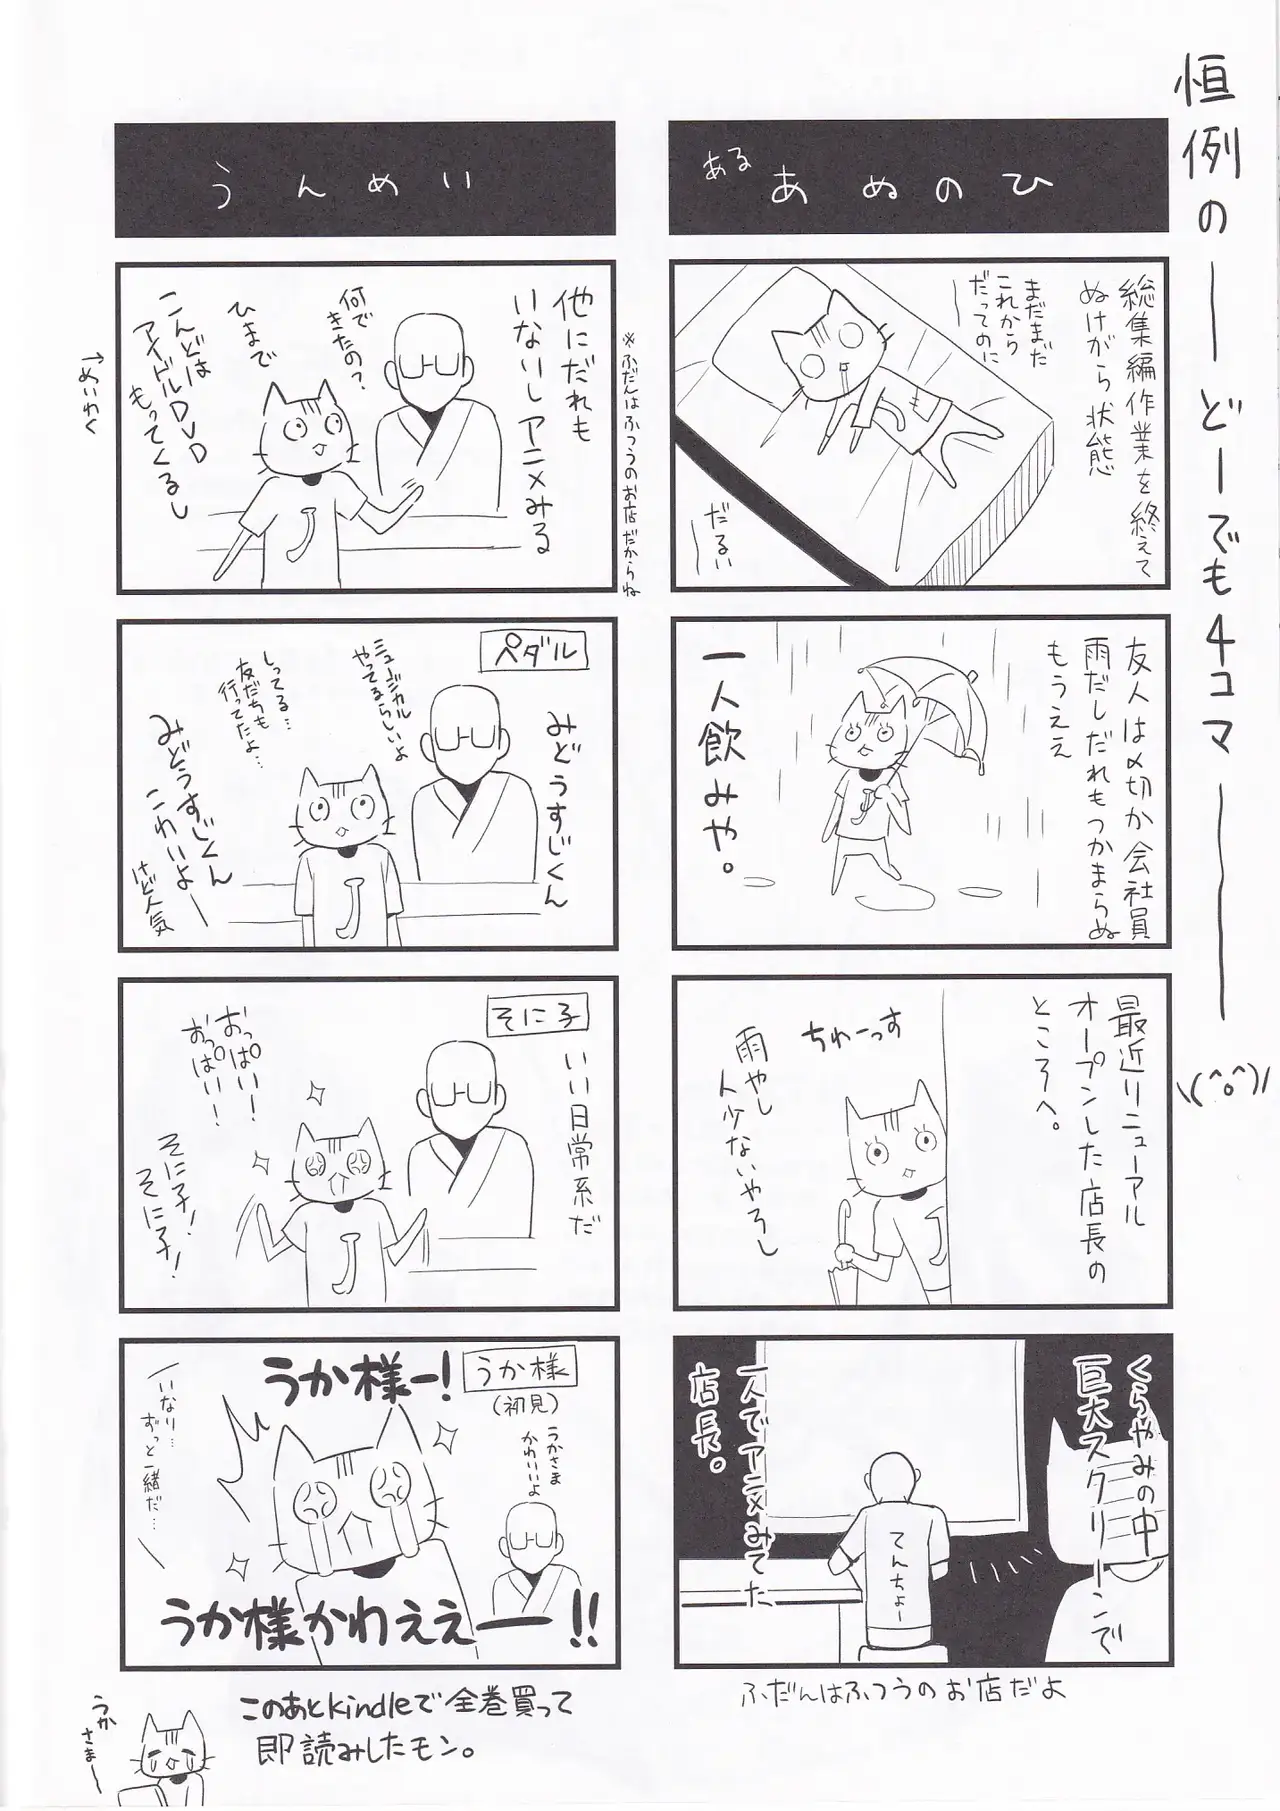 恒例の――どーでも4コマ――\(^o^)/
ある
あめのひ
総集編作業を終えて
ぬけがら状態
まだまだ
これから
だってのに
だるいー
友人は〆切か会社員
雨だしだれもつかまらぬ
もうええ
一人飲みや。
最近リニューアル
オープンした店長の
ところへ。
ちわーっす
雨やし
人少ないやろし
くらやみの中
巨大スクリーンで
一人でアニメみてた
店長。
てんちょー
ふだんはふつうのお店だよ
うんめい
他にだれも
いないしアニメみる
※ふだんはふつうのお店だからね
何で
きたの?
ひまで
こんどは
アイドルDVD
もってくるし
→めいわく
ペダル
みどうすじくん
ミュージカル
やってるらしいよ
しってる…
友だちも
行ってたよ…
みどうすじくん
こわいよー
けど人気
そに子
いい日常系だ
おっぱい!
おっぱい!
そに子!
そに子!
うか様
(初見)
うかさま
かわいいよ
うか様ー!
いなり…
ずっと一緒だ…
うか様かわええー!!
このあとkindleで全巻買って
即読みしたモン。
うか
さまー